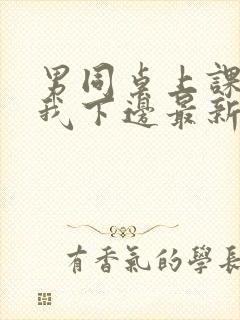 男同桌上課
我下邊最新
有香氣的學長